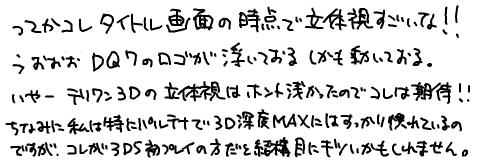 ってかコレ タイトル画面の時点で立体視すごいな!!
うおおお DQ7のロゴが浮いておる しかも動いておる。
いやー テリワン3Dの立体視はホント浅かったのでコレは期待!!
ちなみに私は特にパルテナで3D深度MAXにはすっかり慣れているの
ですが、コレが3DS初プレイの方だと結構目にキツいかもしれません。